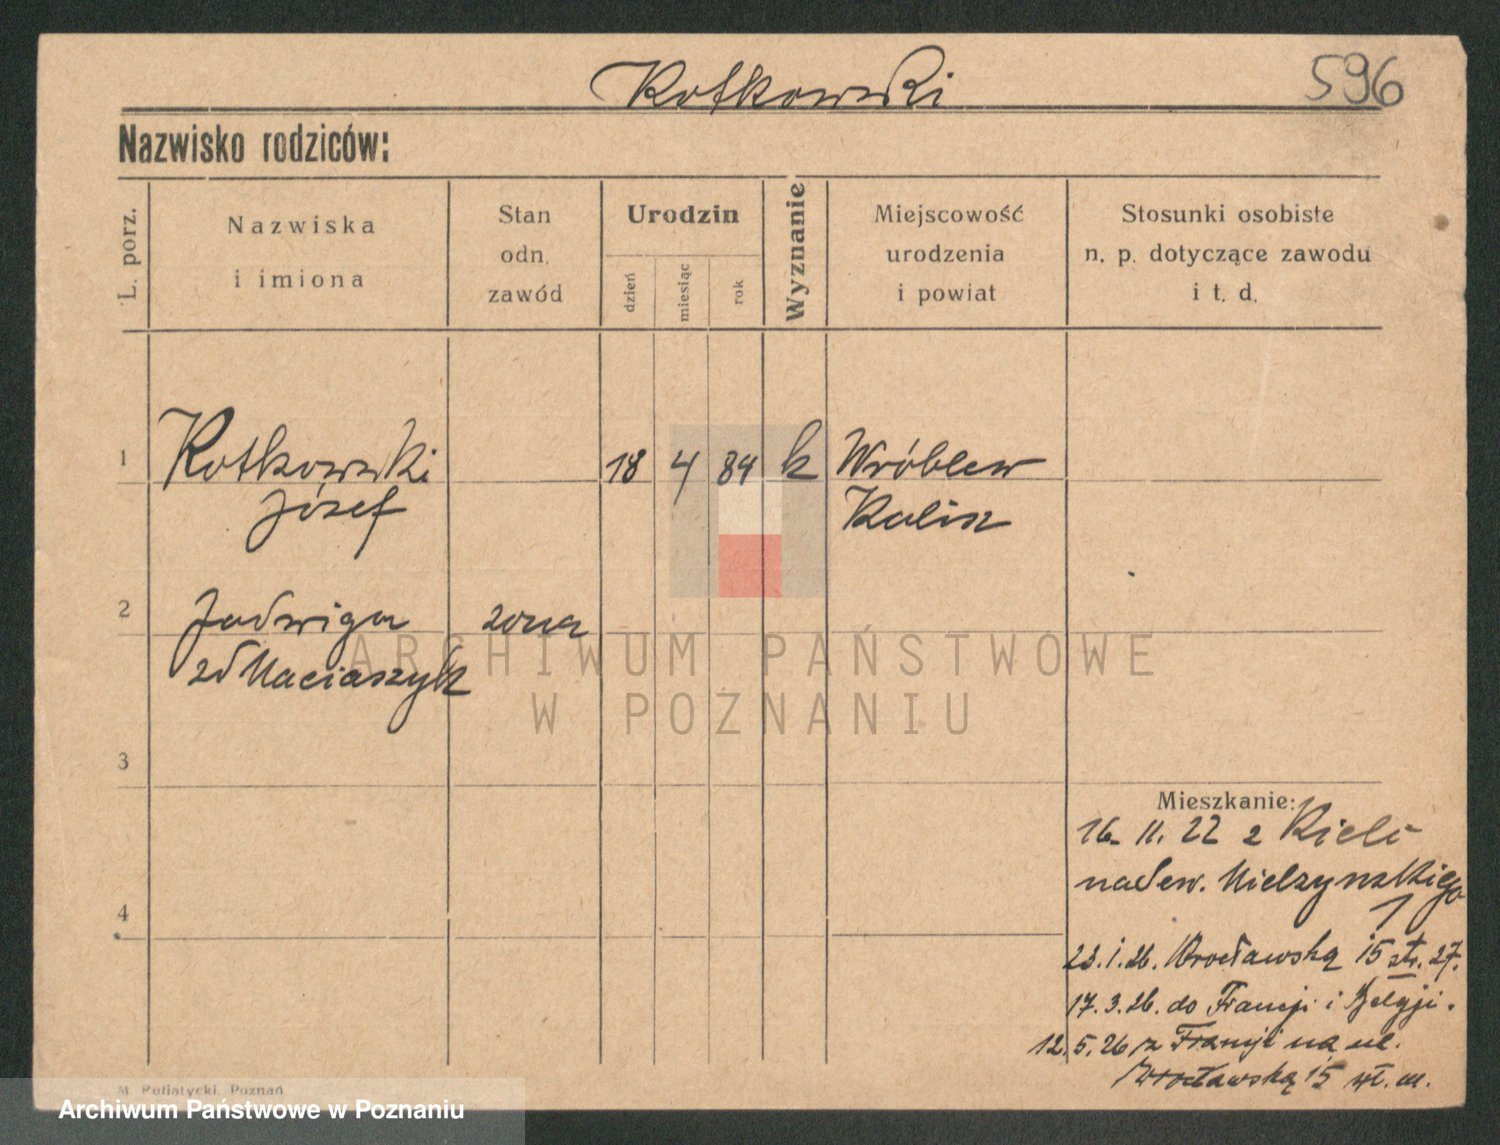 Rotkowski
596
Nazwisko rodziców:
L. porz.
Nazwiska
i imiona
Stan
odn.
zawód
Urodzin
dzień
miesiąc
rok
Wyznanie
Miejscowość
urodzenia
i powiat
Stosunki osobiste
n. p. dotyczące zawodu
i t. d.
1
Rotkowski
Józef
18
4
84
k
Wróblew
Kalisz
2
Jadwiga
zd Maciaszyk
żona
ARCHIWUM PAŃSTWOWE
W POZNANIU
3
4
Mieszkanie:
16. 11. 22 z
na Sew. Mielzynskiego
1
23.1.26. Wrocławską 15 str. 27.
17.3.26. do Francji i Belgji.
12.5.26 z Francji na ul.
Wrocławską 15
M. Putiatycki, Poznań
Archiwum Państwowe w Poznaniu